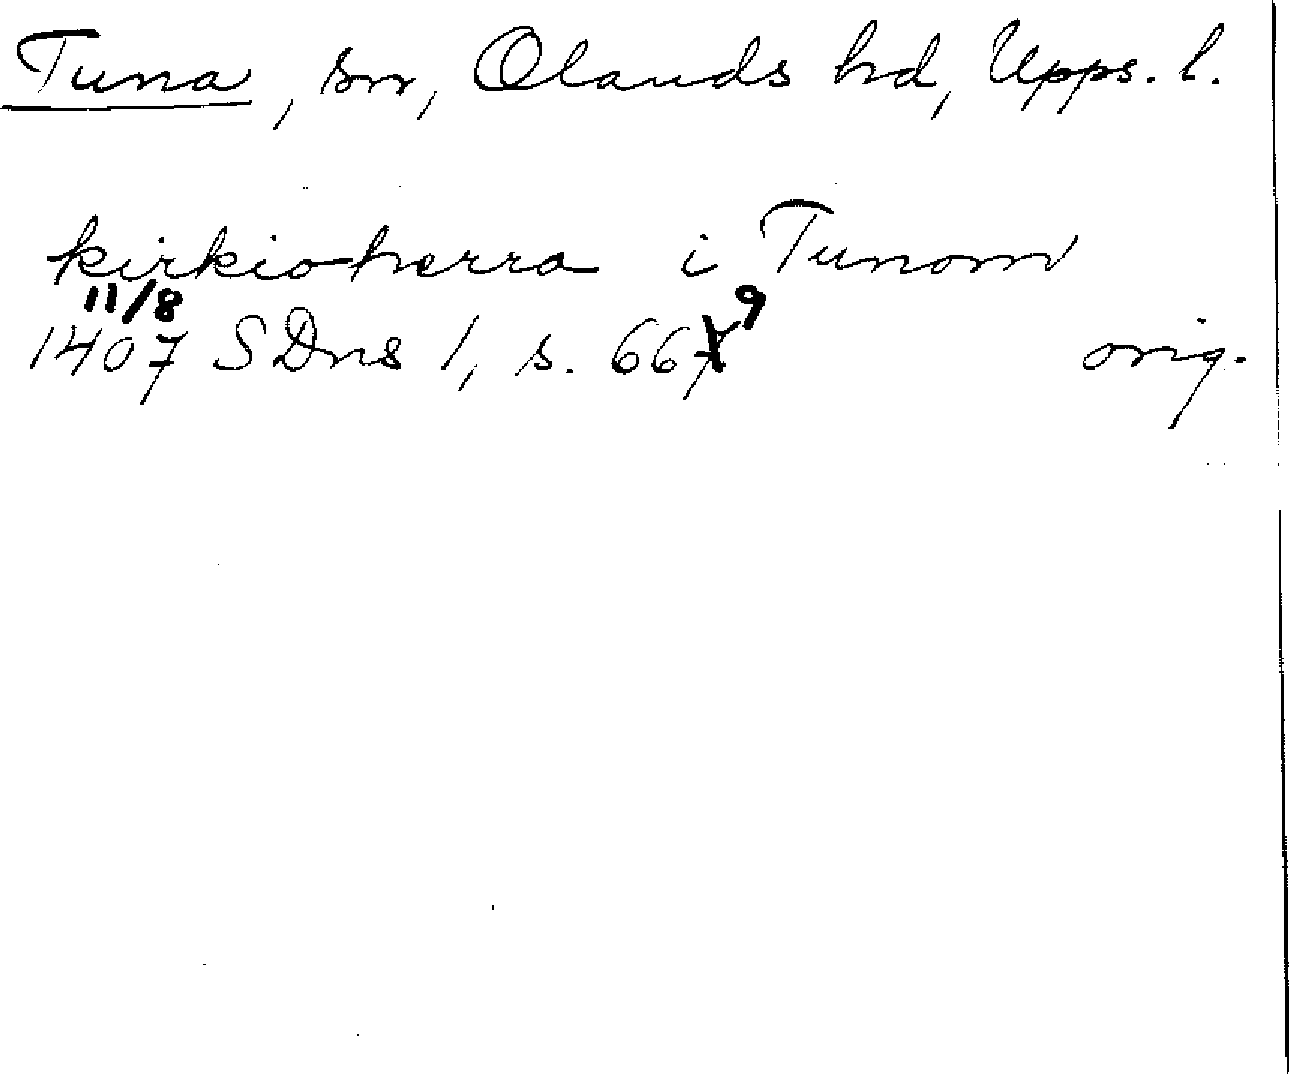 Tuna, sn, Olands hd, Upps. l.
kirkioherra i Tunom
11/8
1407 SDns 1, s. 669 orig.